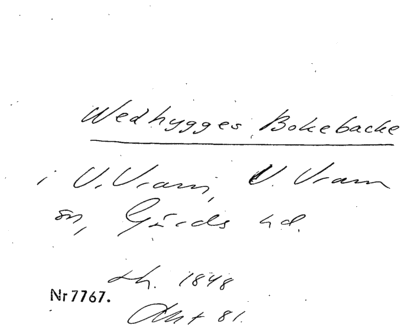 Wedhygges, Bokebacke
i V. Vram, V. Vram
sn, Gärds hd.
sh. 1848
Nr 7767.
Akt 81.